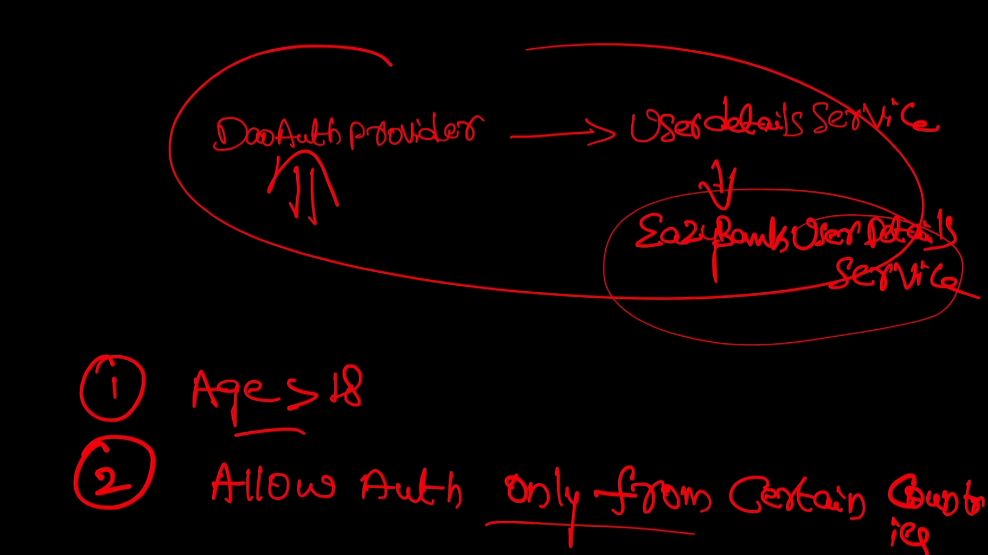 DaoAuthprovider → UserdetailsService
EazyBankUserDetails
Service
1 Age > 18
2 Allow Auth only from Certain Countr
ies